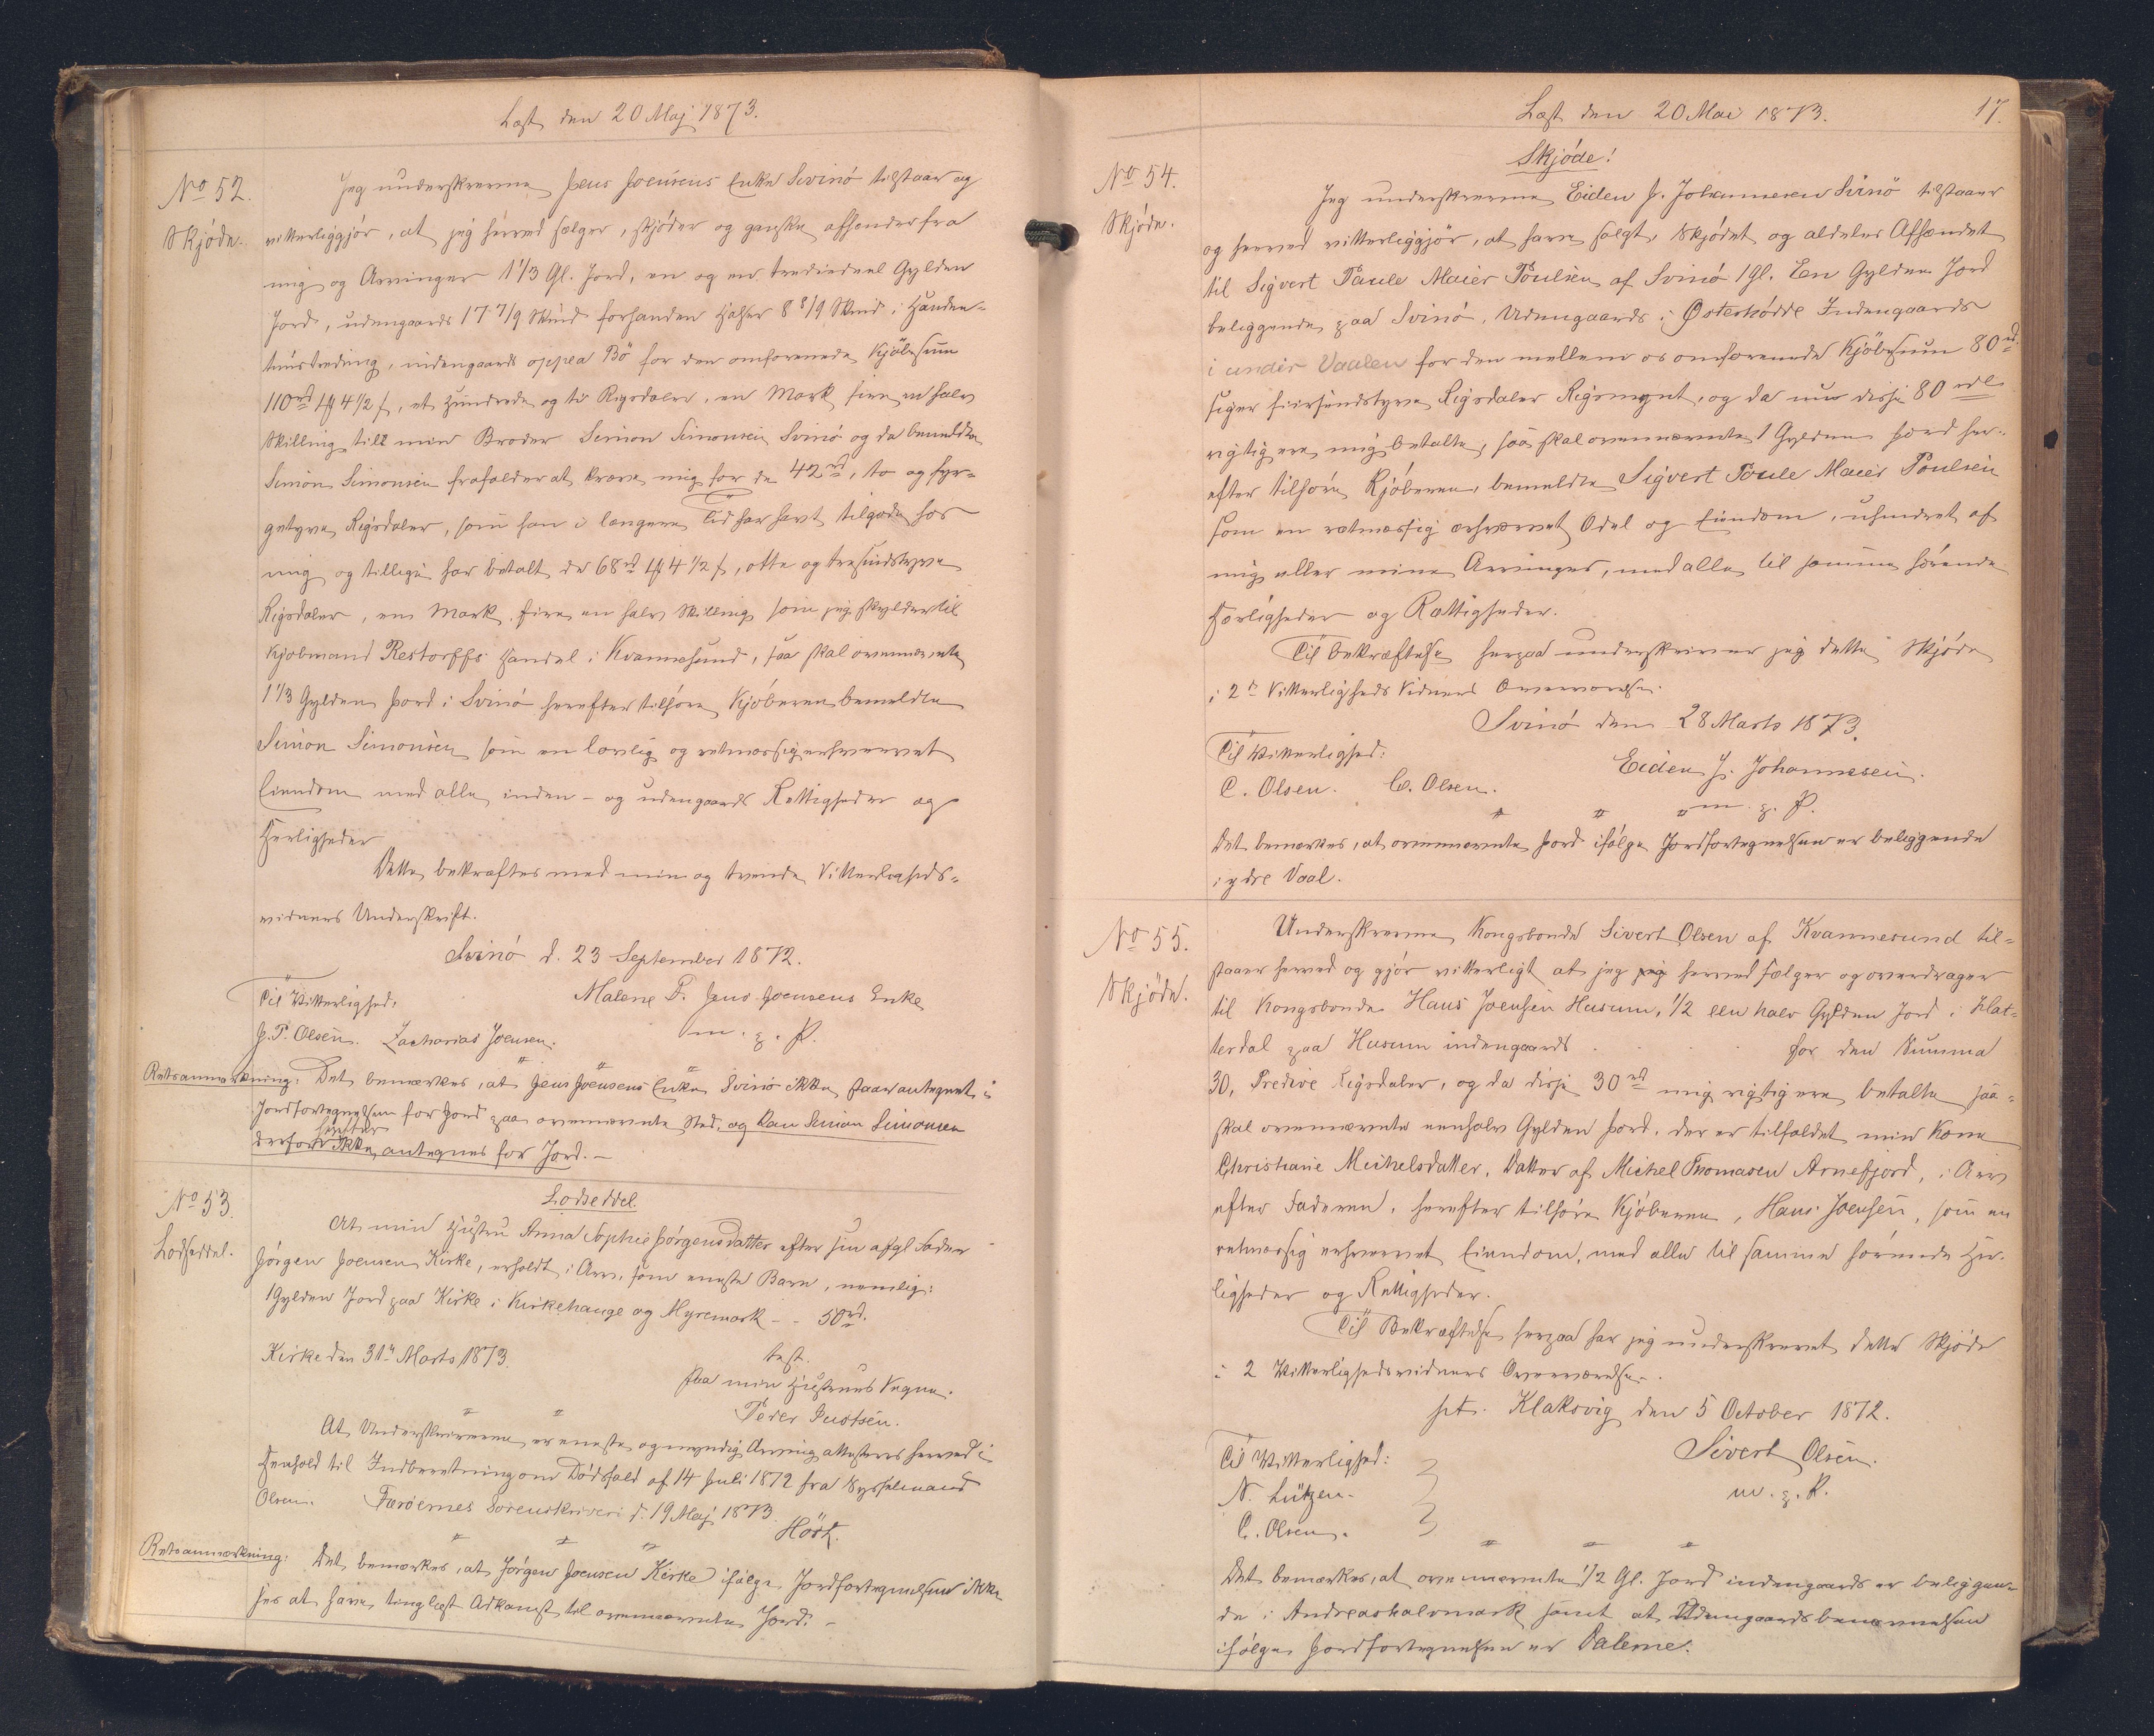 Læst den 20 Maj 1873.
No 52.
Skjøde.
Jeg underskrevne Jens Joensens Enke Svinø tilstaar og
vitterliggjør, at jeg herved sælger, skjøder og ganske afhænder fra
mig og Arvinger 1 1/3 Gl. Jord, en og en trediedeel Gylden
Jord, udengaards 17 7/9 Skind forhanden 8 8/9 Skind i
indengaards oppea Bø for den omforenede Kjøbesum
110 rd 1 # 4 1/2 s, et Hundrede og ti Rigsdaler, en Mark fire en halv
Skilling till min Broder Simon Simonsen Svinø og da bemeldte
Simon Simonsen frafalder at kræve mig for de 42 rd, to og fyr-
getyve Rigsdaler, som han i længere Tid har havt tilgode hos
mig og tillige har betalt de 68 rd 1 # 4 1/2 s, otte og tresindstyve
Rigsdaler, en Mark fire en halv Skilling, som jeg skylder til
Kjøbmand Restorffs Handel i Kvannesund, saa skal ovennævnte
1 1/3 Gylden Jord i Svinø herefter tilhøre Kjøberen bemeldte
Simon Simonsen som en lovlig og retmæssig erhvervet
Eiendom med alle inden- og udengaards Rettigheder og
Herligheder
Dette bekræftes med min og tvende Vitterligheds-
vidners Underskrift.
Svinø d. 23 September 1872.
Til Vitterlighed:
Malene P. Jens Joensens Enke
J. P. Olsen. Zacharias Joensen.
m. p. P.
Retsanmærkning: Det bemærkes, at Jens Joensens Enke Svinø ikke staar antegnet i
Jordfortegnelsen for Jord paa ovennævnte Sted, og kan Simon Simonsen
heller
derfor ikke antegnes for Jord. –
No 53.
Lodseddel.
Lodseddel.
At min Hustru Anna Sophie Jørgensdatter efter sin afgl Fader
Jørgen Joensen Kirke, erholdt i Arv, som eneste Barn, nemlig:
1 Gylden Jord paa Kirke i Kirkehauge og Myremark - - 50 rd.
Kirke den 31te Marts 1873.
test.
Paa min Hustrues Vegne.
Peder Justsen.
At Underskriveren er eneste og myndig Arving attesteres herved i
Henhold til Indberetning om Dødsfald af 14 Juli 1872 fra Sysselmand
Olsen. Færøernes Sorenskriveri d. 19 Maj 1873.
Høst.
Retsanmærkning: Det bemærkes, at Jørgen Joensen Kirke ifølge Jordfortegnelsen ikke
sees at have tinglæst Adkomst til ovennævnte Jord. –
Læst den 20 Mai 1873.
17.
Skjøde!
No 54.
Skjøde.
Jeg underskrevne Eiden J. Johannesen Svinø tilstaaer
og herved vitterliggjør, at have solgt, Skjødet og aldeles Afhændet
til Sigvert Paule Maier Poulsen af Svinø 1 Gl. Een Gylden Jord
beliggende paa Svinø, Udengaards i Østerhødde Indengaards
i undir Vaalen for den mellem os omforenede Kjøbesum 80 rd.
siger fiirsindstyve Rigsdaler Rigsmynt, og da nu disse 80 rdl
rigtig ere mig betalte, saa skal ovennævnte 1 Gylden Jord her-
efter tilhøre Kjøberen, bemeldte Sigvert Poule Maier Poulsen
som en retmæssig erhvervet Odel og Eiendom, uhindret af
mig eller mine Arvinger, med alle til samme hørende
Herligheder og Rettigheder.
Til bekræftelse herpaa underskriver jeg dette Skjøde
i 2de Vitterligheds Vidners Overværelse.
Svinø den 28 Marts 1873.
Til Vitterlighed:
Eiden J. Johannesen.
C. Olsen. C. Olsen.
m. p. P.
Det bemærkes, at ovennævnte Jord ifølge Jordfortegnelsen er beliggende
i ydre Vaal.
No 55.
Skjøde.
Underskrevne Kongsbonde Sivert Olsen af Kvannesund til-
staaer herved og gjør vitterligt at jeg jeg herved sælger og overdrager
til Kongsbonde Hans Joensen Husum, 1/2 een halv Gylden Jord i Klat-
terdal paa Husum indengaards . . . . for den Summa
30, Tredive Rigsdaler, og da disse 30 rd mig rigtig ere betalte saa
skal ovennævnte eenhalv Gylden Jord, der er tilfaldet min Kone
Christiane Michelsdatter, Datter af Michel Thomasen Arnefjord, i Arv
efter Faderen, herefter tilhøre Kjøberen, Hans Joensen, som en
retmæssig erhvervet Eiendom, med alle til samme hørende Her-
ligheder og Rettigheder.
Til Bekræftelse herpaa har jeg underskrevet dette Skjøde
i 2 Vitterlighedsvidners Overværelse.
pt. Klaksvig den 5 October 1872.
Til Vitterlighed:
Sivert Olsen.
N. Lützen.
m. p. P.
C. Olsen.
Det bemærkes, at ovennævnte 1/2 Gl. Jord indengaards er beliggen-
de i Andreashalvmark samt at Udengaardsbenævnelsen
ifølge Jordfortegnelsen er Dalene.